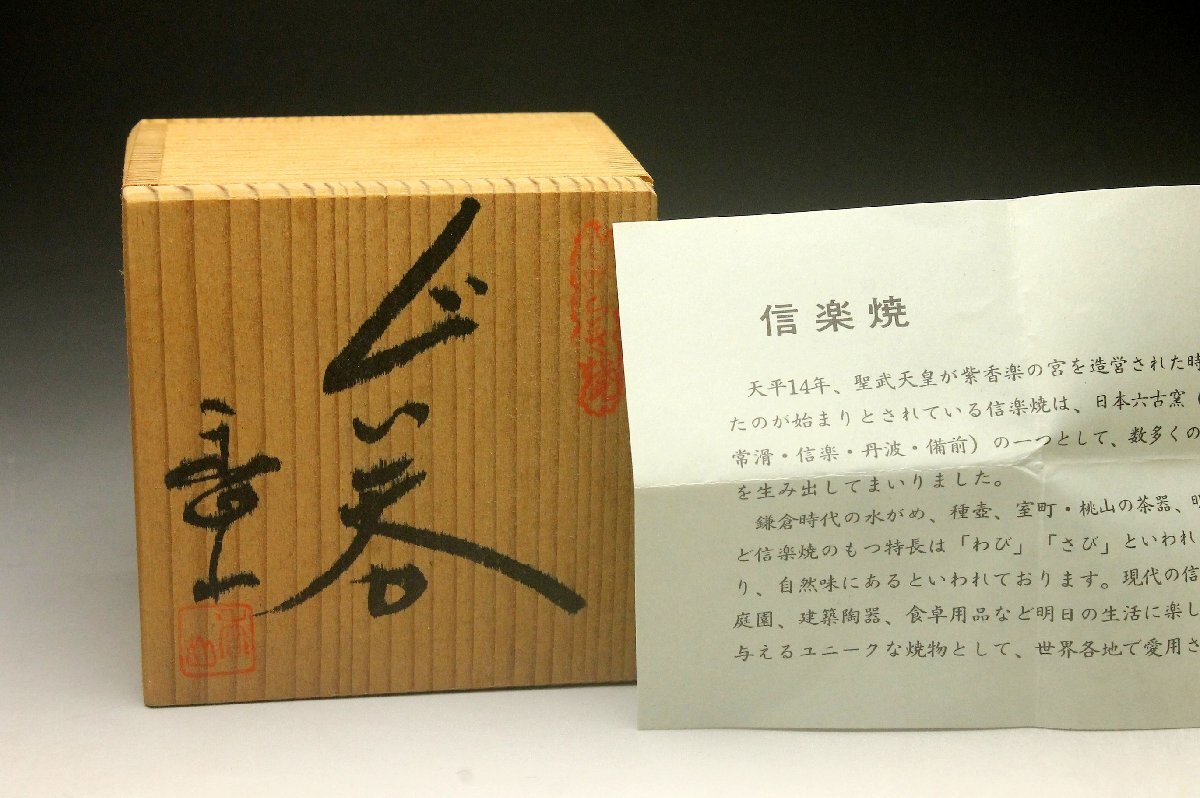 ぐい呑
信楽焼
天平14年、聖武天皇が紫香楽の宮を造営された時
たのが始まりとされている信楽焼は、日本六古窯（
常滑・信楽・丹波・備前）の一つとして、数多くの
を生み出してまいりました。
鎌倉時代の水がめ、種壺、室町・桃山の茶器、明
ど信楽焼のもつ特長は「わび」「さび」といわれ
り、自然味にあるといわれております。現代の信
庭園、建築陶器、食卓用品など明日の生活に楽し
与えるユニークな焼物として、世界各地で愛用さ